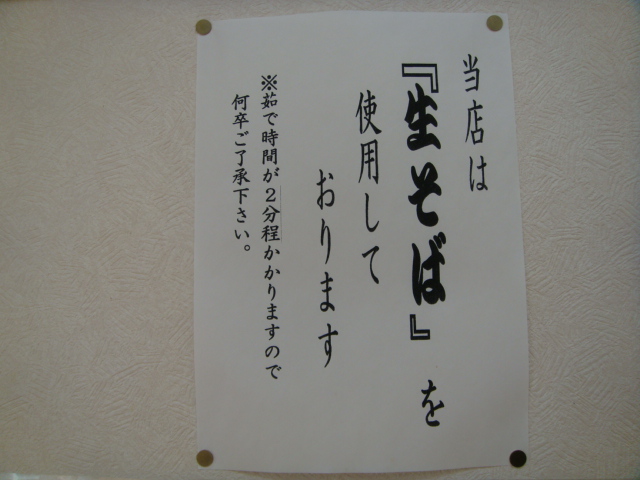 当店は
『生そば』を
使用して
おります
※茹で時間が2分程かかりますので
何卒ご了承下さい。